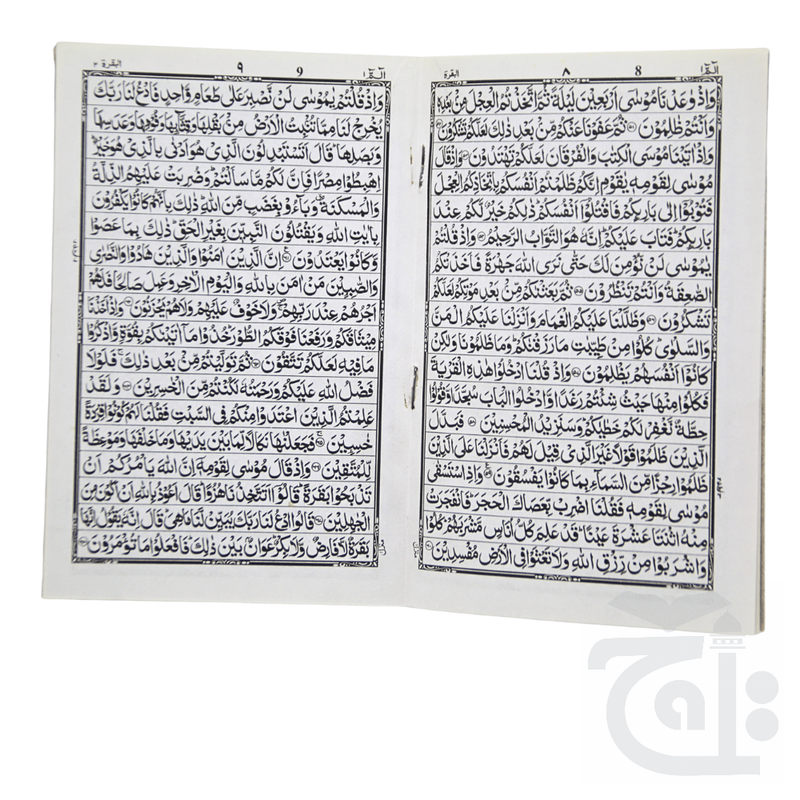 الٓمّٓ ١ 8 ٨ البقرة
وَاِذْ وٰعَدْنَا مُوْسٰٓى اَرْبَعِيْنَ لَيْلَةً ثُمَّ اتَّخَذْتُمُ الْعِجْلَ مِنْۢ بَعْدِهٖ
وَاَنْتُمْ ظٰلِمُوْنَ ۝ ثُمَّ عَفَوْنَا عَنْكُمْ مِّنْۢ بَعْدِ ذٰلِكَ لَعَلَّكُمْ تَشْكُرُوْنَ ۝
وَاِذْ اٰتَيْنَا مُوْسَى الْكِتٰبَ وَالْفُرْقَانَ لَعَلَّكُمْ تَهْتَدُوْنَ ۝ وَاِذْ قَالَ
مُوْسٰى لِقَوْمِهٖ يٰقَوْمِ اِنَّكُمْ ظَلَمْتُمْ اَنْفُسَكُمْ بِاتِّخَاذِكُمُ الْعِجْلَ
فَتُوْبُوْٓا اِلٰى بَارِئِكُمْ فَاقْتُلُوْٓا اَنْفُسَكُمْ ذٰلِكُمْ خَيْرٌ لَّكُمْ عِنْدَ
بَارِئِكُمْ فَتَابَ عَلَيْكُمْ اِنَّهٗ هُوَ التَّوَّابُ الرَّحِيْمُ ۝ وَاِذْ قُلْتُمْ
يٰمُوْسٰى لَنْ نُّؤْمِنَ لَكَ حَتّٰى نَرَى اللّٰهَ جَهْرَةً فَاَخَذَتْكُمُ
الصّٰعِقَةُ وَاَنْتُمْ تَنْظُرُوْنَ ۝ ثُمَّ بَعَثْنٰكُمْ مِّنْۢ بَعْدِ مَوْتِكُمْ لَعَلَّكُمْ
تَشْكُرُوْنَ ۝ وَظَلَّلْنَا عَلَيْكُمُ الْغَمَامَ وَاَنْزَلْنَا عَلَيْكُمُ الْمَنَّ
وَالسَّلْوٰى كُلُوْا مِنْ طَيِّبٰتِ مَا رَزَقْنٰكُمْ وَمَا ظَلَمُوْنَا وَلٰكِنْ
كَانُوْٓا اَنْفُسَهُمْ يَظْلِمُوْنَ ۝ وَاِذْ قُلْنَا ادْخُلُوْا هٰذِهِ الْقَرْيَةَ
فَكُلُوْا مِنْهَا حَيْثُ شِئْتُمْ رَغَدًا وَّادْخُلُوا الْبَابَ سُجَّدًا وَّقُوْلُوْا
حِطَّةٌ نَّغْفِرْ لَكُمْ خَطٰيٰكُمْ وَسَنَزِيْدُ الْمُحْسِنِيْنَ ۝ فَبَدَّلَ
الَّذِيْنَ ظَلَمُوْا قَوْلًا غَيْرَ الَّذِيْ قِيْلَ لَهُمْ فَاَنْزَلْنَا عَلَى الَّذِيْنَ
ظَلَمُوْا رِجْزًا مِّنَ السَّمَآءِ بِمَا كَانُوْا يَفْسُقُوْنَ ۝ وَاِذِ اسْتَسْقٰى
مُوْسٰى لِقَوْمِهٖ فَقُلْنَا اضْرِبْ بِّعَصَاكَ الْحَجَرَ فَانْفَجَرَتْ
مِنْهُ اثْنَتَا عَشْرَةَ عَيْنًا قَدْ عَلِمَ كُلُّ اُنَاسٍ مَّشْرَبَهُمْ كُلُوْا
وَاشْرَبُوْا مِنْ رِّزْقِ اللّٰهِ وَلَا تَعْثَوْا فِى الْاَرْضِ مُفْسِدِيْنَ ۝
الٓمّٓ ١ 9 ٩ البقرة ٢
وَاِذْ قُلْتُمْ يٰمُوْسٰى لَنْ نَّصْبِرَ عَلٰى طَعَامٍ وَّاحِدٍ فَادْعُ لَنَا رَبَّكَ
يُخْرِجْ لَنَا مِمَّا تُنْۢبِتُ الْاَرْضُ مِنْۢ بَقْلِهَا وَقِثَّآئِهَا وَفُوْمِهَا وَعَدَسِهَا
وَبَصَلِهَا قَالَ اَتَسْتَبْدِلُوْنَ الَّذِيْ هُوَ اَدْنٰى بِالَّذِيْ هُوَ خَيْرٌ
اِهْبِطُوْا مِصْرًا فَاِنَّ لَكُمْ مَّا سَاَلْتُمْ وَضُرِبَتْ عَلَيْهِمُ الذِّلَّةُ
وَالْمَسْكَنَةُ وَبَآءُوْ بِغَضَبٍ مِّنَ اللّٰهِ ذٰلِكَ بِاَنَّهُمْ كَانُوْا يَكْفُرُوْنَ
بِاٰيٰتِ اللّٰهِ وَيَقْتُلُوْنَ النَّبِيّٖنَ بِغَيْرِ الْحَقِّ ذٰلِكَ بِمَا عَصَوْا
وَّكَانُوْا يَعْتَدُوْنَ ۝ اِنَّ الَّذِيْنَ اٰمَنُوْا وَالَّذِيْنَ هَادُوْا وَالنَّصٰرٰى
وَالصّٰبِـِٕيْنَ مَنْ اٰمَنَ بِاللّٰهِ وَالْيَوْمِ الْاٰخِرِ وَعَمِلَ صَالِحًا فَلَهُمْ
اَجْرُهُمْ عِنْدَ رَبِّهِمْ وَلَا خَوْفٌ عَلَيْهِمْ وَلَا هُمْ يَحْزَنُوْنَ ۝ وَاِذْ اَخَذْنَا
مِيْثَاقَكُمْ وَرَفَعْنَا فَوْقَكُمُ الطُّوْرَ خُذُوْا مَآ اٰتَيْنٰكُمْ بِقُوَّةٍ وَّاذْكُرُوْا
مَا فِيْهِ لَعَلَّكُمْ تَتَّقُوْنَ ۝ ثُمَّ تَوَلَّيْتُمْ مِّنْۢ بَعْدِ ذٰلِكَ فَلَوْلَا
فَضْلُ اللّٰهِ عَلَيْكُمْ وَرَحْمَتُهٗ لَكُنْتُمْ مِّنَ الْخٰسِرِيْنَ ۝ وَلَقَدْ
عَلِمْتُمُ الَّذِيْنَ اعْتَدَوْا مِنْكُمْ فِى السَّبْتِ فَقُلْنَا لَهُمْ كُوْنُوْا قِرَدَةً
خٰسِـِٕيْنَ ۝ فَجَعَلْنٰهَا نَكَالًا لِّمَا بَيْنَ يَدَيْهَا وَمَا خَلْفَهَا وَمَوْعِظَةً
لِّلْمُتَّقِيْنَ ۝ وَاِذْ قَالَ مُوْسٰى لِقَوْمِهٖٓ اِنَّ اللّٰهَ يَاْمُرُكُمْ اَنْ
تَذْبَحُوْا بَقَرَةً قَالُوْٓا اَتَتَّخِذُنَا هُزُوًا قَالَ اَعُوْذُ بِاللّٰهِ اَنْ اَكُوْنَ مِنَ
الْجٰهِلِيْنَ ۝ قَالُوا ادْعُ لَنَا رَبَّكَ يُبَيِّنْ لَّنَا مَا هِيَ قَالَ اِنَّهٗ يَقُوْلُ اِنَّهَا
بَقَرَةٌ لَّا فَارِضٌ وَّلَا بِكْرٌ عَوَانٌۢ بَيْنَ ذٰلِكَ فَافْعَلُوْا مَا تُؤْمَرُوْنَ ۝
تاج